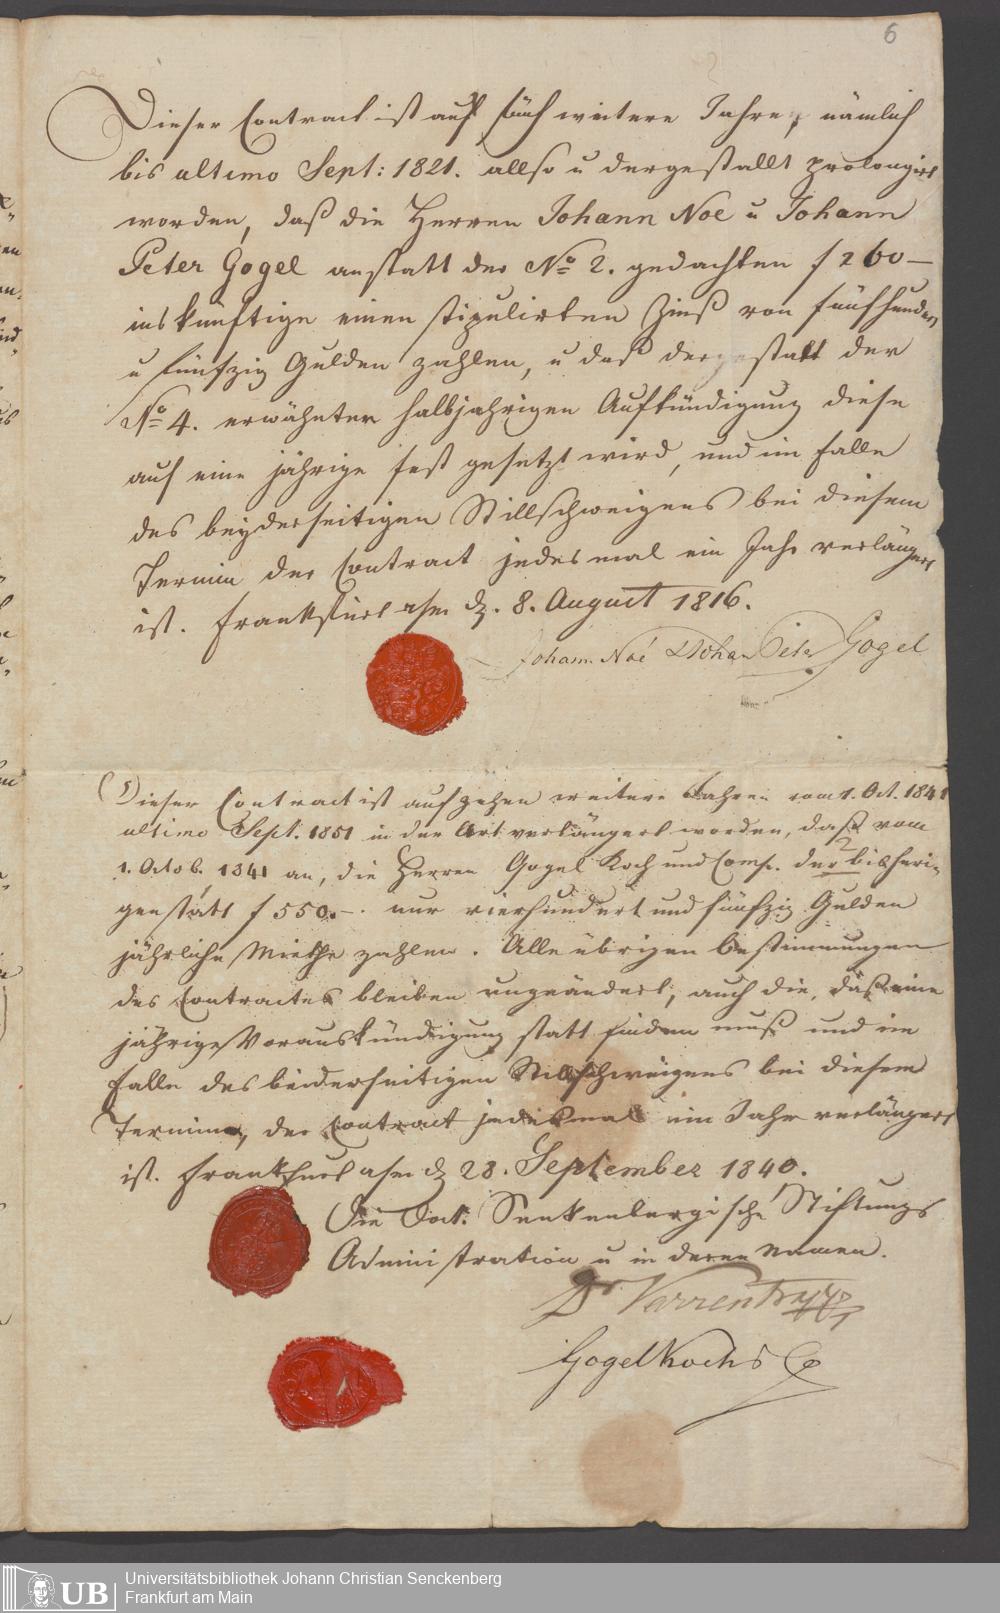 6
Dieser Contract ist auf fünf weitere Jahre, nämlich
bis ultimo Sept: 1821. allso u dergestallt prolongirt
worden, daß die Herren Johann Noé u Johann
Peter Gogel anstatt der No 2. gedachten f 260 —
inskünftige einen stipulirten Zinß von fünfhundert
u fünfzig Gulden zahlen, u daß dergestalt der
No 4. erwähnter halbjahrigen Aufkündigung diese
auf eine jährige fest gesetzt wird, und im Falle
des beyderseitigen Stillschweigens bei diesem
Termin der Contract jedesmal ein Jahr verlängert
ist. Frankfurt a/m d. 8. August 1816.
Johann Noé Johan Peter Gogel
Dieser Contract ist auf zehen weitere Jahren vom 1. Oct. 1841
ultimo Sept. 1851 in der Art verlängert worden, daß vom
1. Octob. 1841 an, die Herren Gogel Koch und Comp. der bisheri-
gen statt f 550.—. nur vierhundert und fünfzig Gulden
jährliche Miethe zahlen. Alle übrigen Bestimmungen
des Contractes bleiben ungeändert, auch die, daß eine
jährige Vorauskündigung statt finden muß und im
Falle des beiderseitigen Stillschweigens bei diesem
Termine, der Contract jedesmal ein Jahr verlängert
ist. Frankfurt a/m d 28. September 1840.
Die Doct. Senkenbergische Stiftungs
Administration u in deren Namen.
Dr Varrentrapp
Gogel Koch & Co
UB
Universitätsbibliothek Johann Christian Senckenberg
Frankfurt am Main